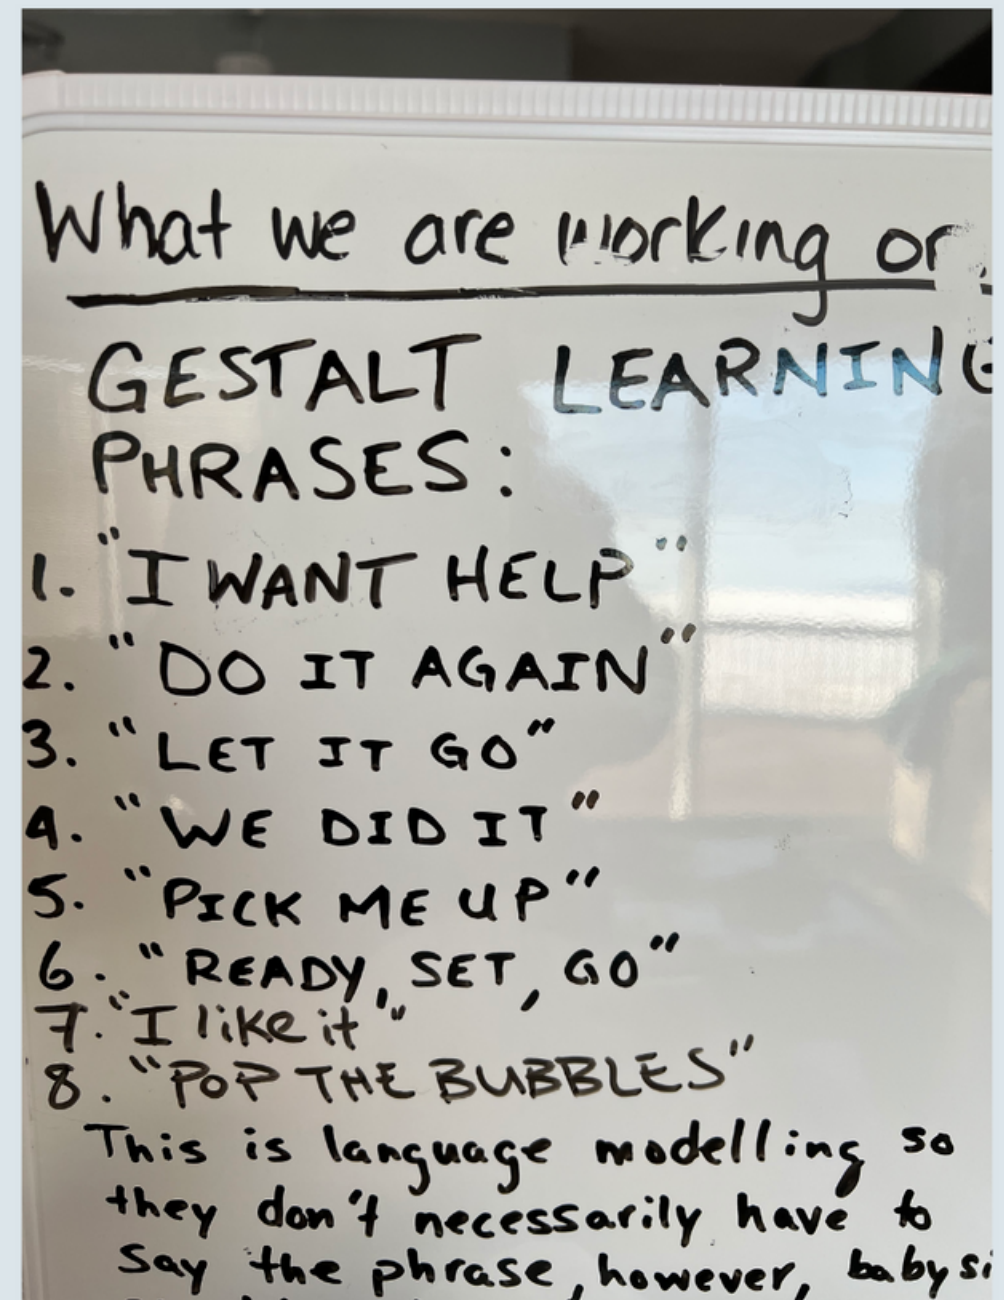 What we are working on
GESTALT LEARNING
PHRASES:
1. "I WANT HELP"
2. "DO IT AGAIN"
3. "LET IT GO"
4. "WE DID IT"
5. "PICK ME UP"
6. "READY, SET, GO"
7. "I like it"
8. "POP THE BUBBLES"
This is language modelling so
they don't necessarily have to
say the phrase, however, babysi